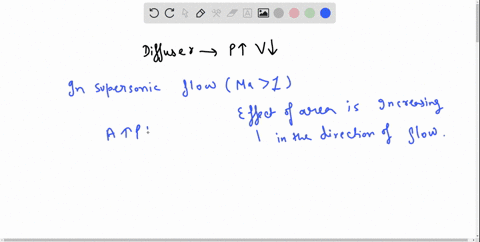 Diffuser → P↑ V↓
In supersonic flow (Ma > 1)
Effect of area is increasing
A↑ P:
in the direction of flow.